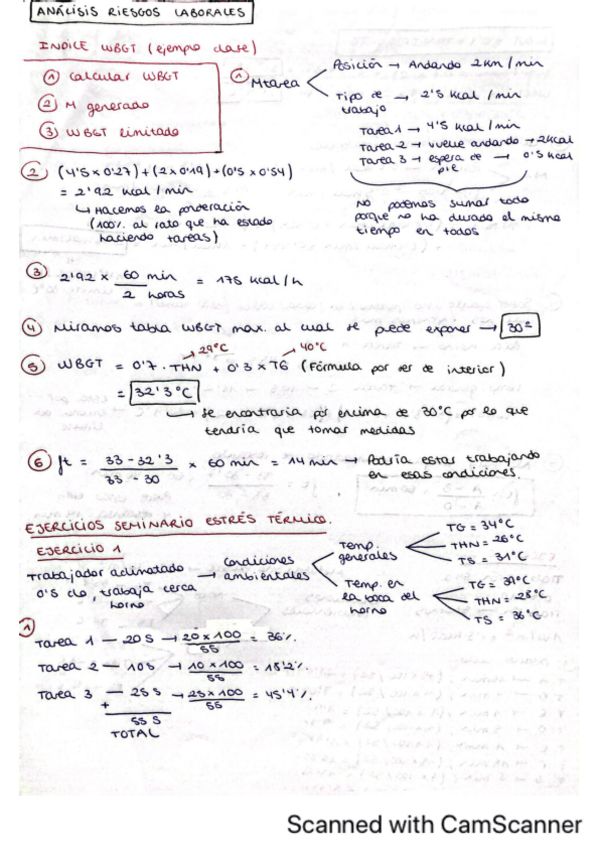 ANÁLISIS RIESGOS LABORALES
INDICE WBGT (ejemplo clase)
① Calcular WBGT
② M generado
③ WBGT limitado
① Mtarea
Posición → Andando 2 km / min
Tipo de trabajo → 2'5 kcal / min
Tarea 1 → 4'5 kcal / min
Tarea 2 → vuelve andando → 2 kcal
Tarea 3 → espera de pie → 0'5 kcal
No podemos sumar todo
porque no ha durado el mismo
tiempo en todos
② (4'5 x 0'27) + (2 x 0'19) + (0'5 x 0'54)
= 2'92 kcal / min
↳ Hacemos la ponderación
(100% al rato que ha estado
haciendo tareas)
③ 2'92 x 60 min / 2 horas = 175 kcal / h
④ Miramos tabla WBGT max. al cual se puede exponer → 30º
→ 29ºC → 40ºC
⑤ WBGT = 0'7 · THN + 0'3 x TG (Fórmula por ser de interior)
= 32'3ºC
↳ Se encontraría por encima de 30ºC por lo que
tendría que tomar medidas
⑥ ft = 33 - 32'3 / 33 - 30 x 60 min = 14 min → Podría estar trabajando
en esas condiciones.
EJERCICIOS SEMINARIO ESTRÉS TÉRMICO.
EJERCICIO 1
Trabajador aclimatado
0'5 clo, trabaja cerca
horno
→ Condiciones
ambientales
Temp.
generales
TG = 34ºC
THN = 26ºC
TS = 31ºC
Temp. en
la boca del
horno
TG = 39ºC
THN = 28ºC
TS = 36ºC
①
Tarea 1 — 20 s → 20 x 100 / 55 = 36%.
Tarea 2 — 10 s → 10 x 100 / 55 = 18'2%.
Tarea 3 — 25 s → 25 x 100 / 55 = 45'4%.
+
55 s
TOTAL
Scanned with CamScanner